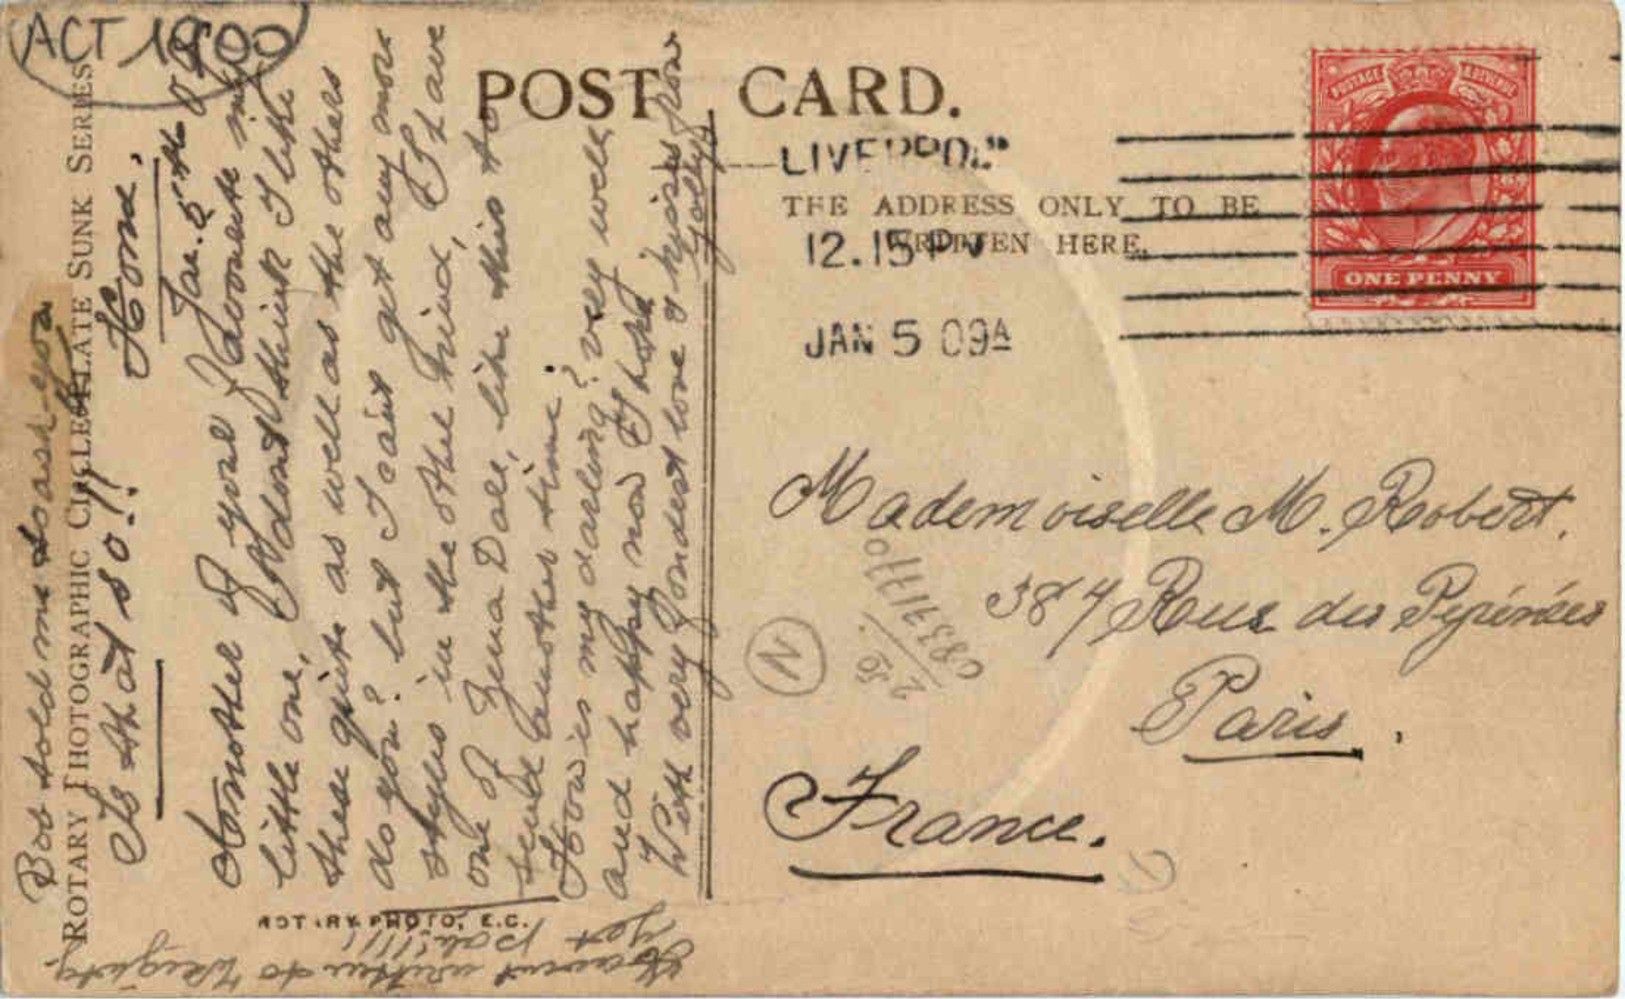 ACT 1900
POST CARD.
LIVERPOOL
THE ADDRESS ONLY TO BE
WRITTEN HERE.
12.15 PM
JAN 5 09A
ONE PENNY
POSTAGE & REVENUE
Mademoiselle M. Robert.
387 Rue des Pyrénées
Paris.
France.
N
C8837170
250
ROTARY PHOTOGRAPHIC CIRCLE PLATE SUNK SERIES
ROTARY PHOTO, E.C.
Home.
Jan. 5th 09
Another of your favourite my
little one, I don't think I like
these quite as well as the others
do you? but I can't get any more
styles in the other kind, I have
one of Zena Dare, like this to
send another time.
How is my darling? very well
and happy now I hope
With very fondest love & kisses from
Jolly
told me to ask you
Is that so!!
Havent written to
yet